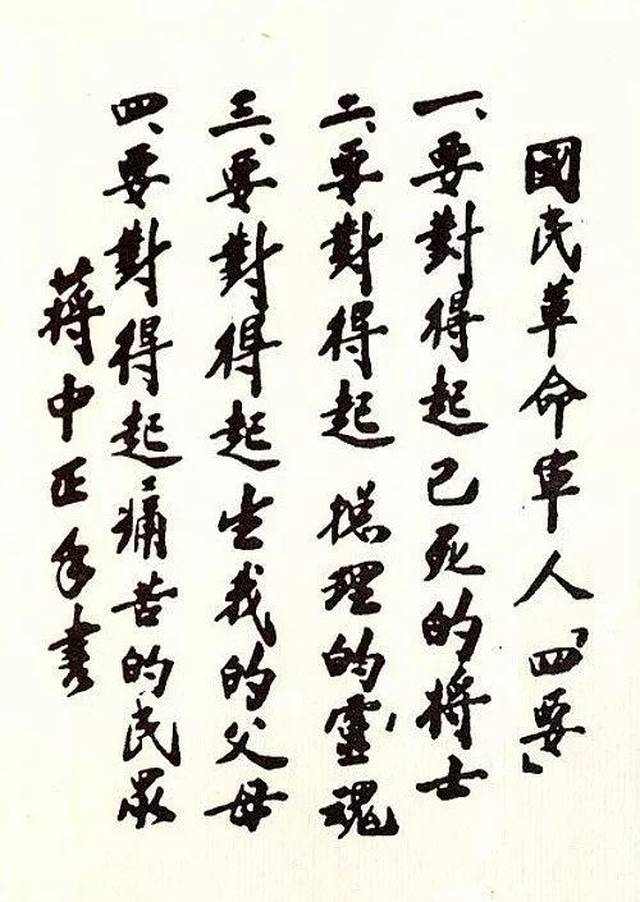 國民革命軍人「四要」
一、要對得起已死的將士
二、要對得起總理的靈魂
三、要對得起生我的父母
四、要對得起痛苦的民眾
蔣中正手書